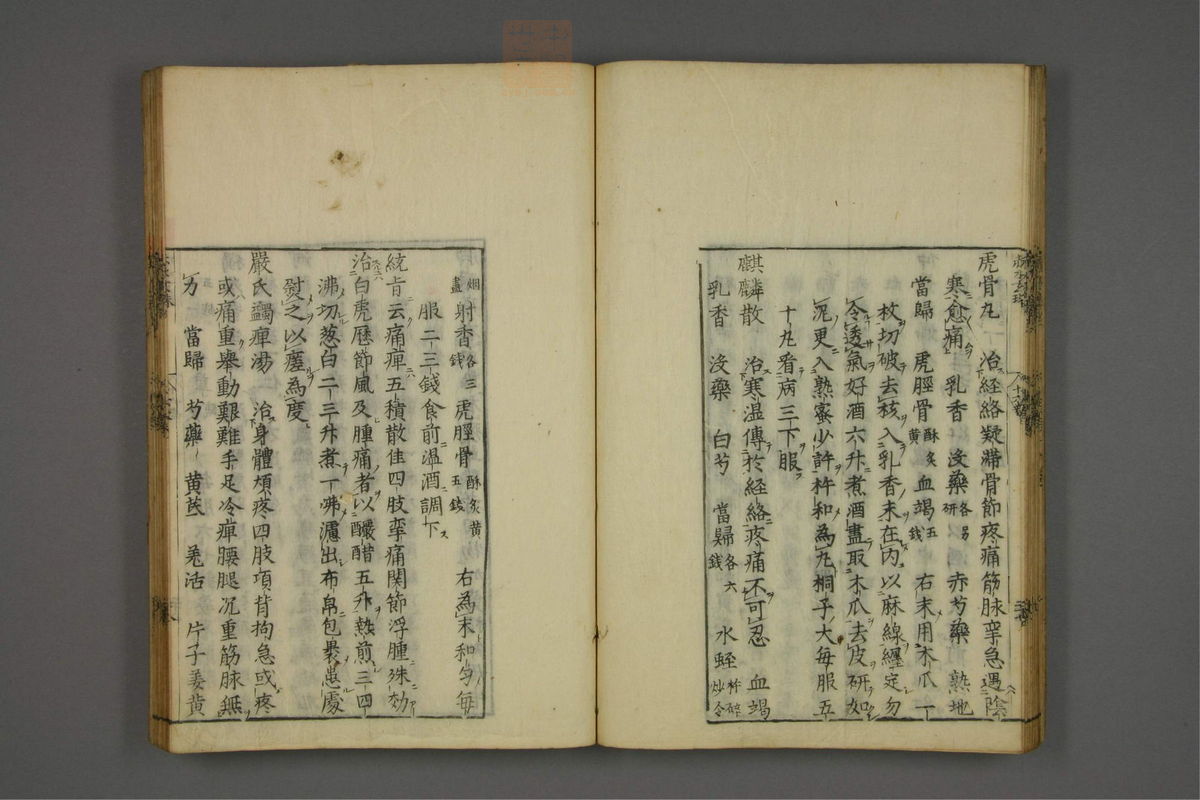 虎骨丸 治経絡凝滞骨節疼痛筋脉挛急遇陰
寒愈痛 乳香 沒藥各另研 赤芍藥 熟地
當歸 虎脛骨酥炙黄 血竭五錢 右末用木瓜一
枚切破去核入乳香末在内以麻線纏定勿
令透氣好酒六升煮酒盡取木瓜去皮研如
泥更入熟蜜少許杵和為丸桐子大每服五
十丸看病三下服
麒麟散 治寒温傳於経絡疼痛不可忍 血竭
乳香 沒藥 白芍 當歸各六錢 水蛭杵碎炒令
烟盡 射香各三錢 虎脛骨酥炙黄五錢 右為末和匀每
服二三錢食前温酒調下
統旨云痛痺五積散佳四肢挛痛関節浮腫殊効
治白虎歴節風及腫痛者以釅醋五升熱煎三四
沸切葱白二三升煮一沸濾出布帛包裹患處
熨之以瘥為度
嚴氏蠲痺湯 治身體煩疼四肢項背拘急或疼
或痛重舉動艱難手足冷痺腰腿沉重筋脉無
力 當歸 芍藥 黄芪 羗活 片子姜黄